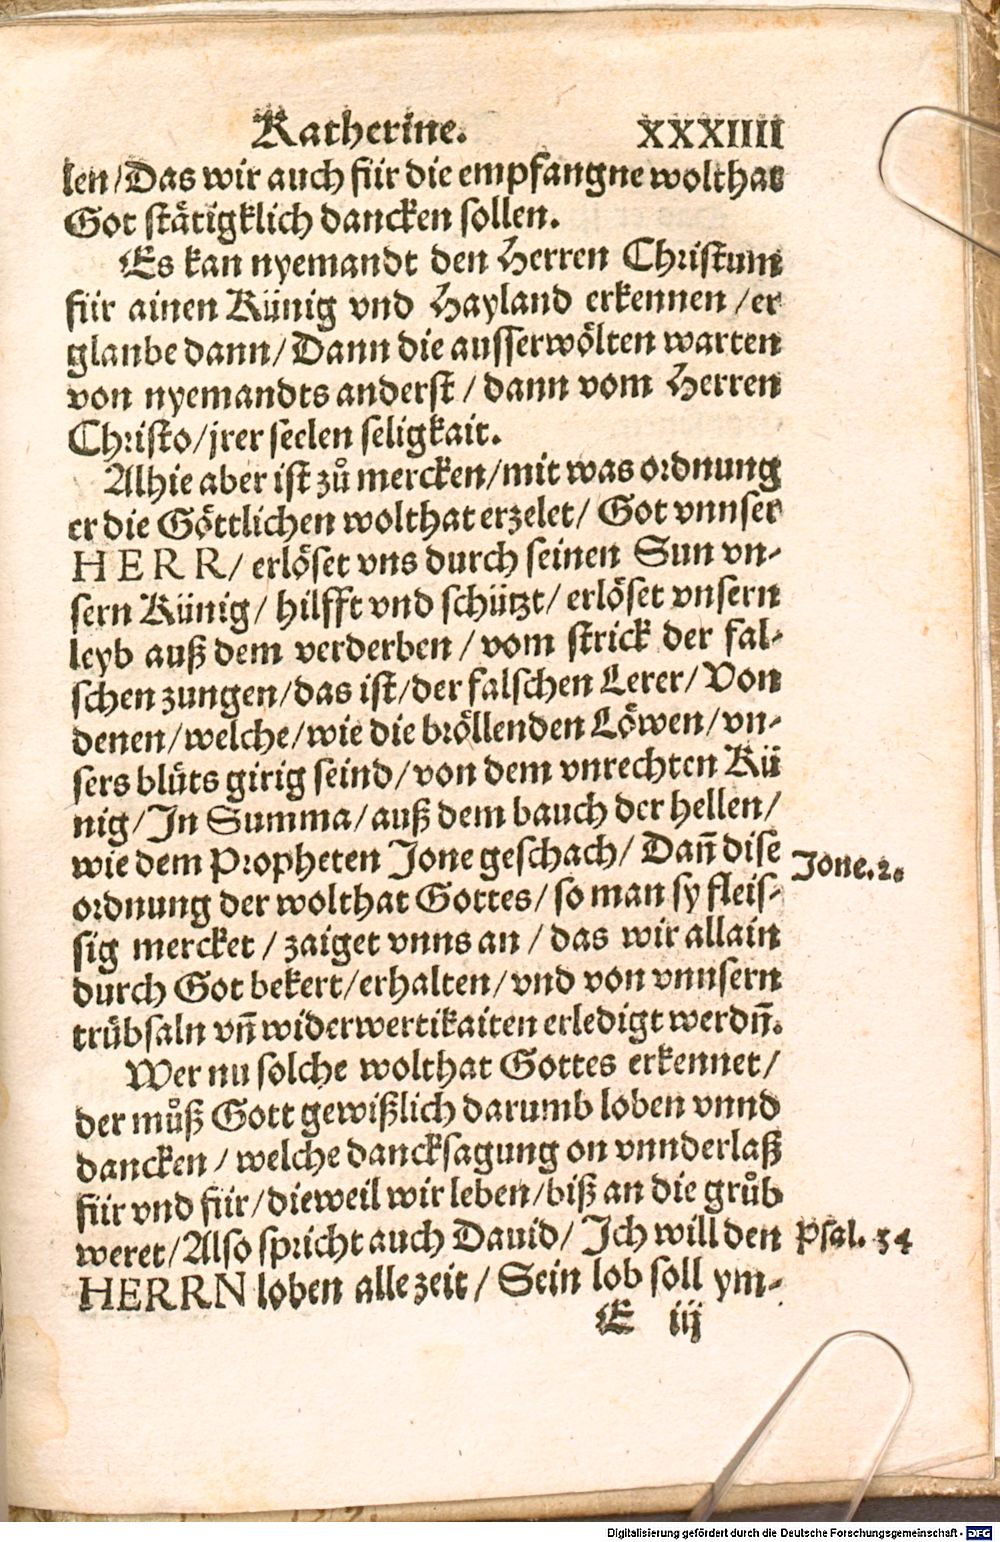 Katherine. XXXIIII
len/Das wir auch für die empfangne wolthat
Got stätigklich dancken sollen.
Es kan nyemandt den Herren Christum
für ainen Künig vnd Hayland erkennen/er
glaube dann/Dann die ausserwölten warten
von nyemandts anderst/dann vom Herren
Christo/jrer seelen seligkait.
Alhie aber ist zů mercken/mit was ordnung
er die Göttlichen wolthat erzelet/Got vnnser
HERR/erlöset vns durch seinen Sun vn-
sern Künig/hilfft vnd schützt/erlöset vnsern
leyb auß dem verderben/vom strick der fal-
schen zungen/das ist/der falschen Lerer/Von
denen/welche/wie die bröllenden Löwen/vn-
sers blůts girig seind/von dem vnrechten Kü
nig/In Summa/auß dem bauch der hellen/
wie dem Propheten Jone geschach/Dañ dise Jone.2.
ordnung der wolthat Gottes/so man sy fleis-
sig mercket/zaiget vnns an/das wir allain
durch Got bekert/erhalten/vnd von vnnsern
trübsaln vñ widerwertikaiten erledigt werdñ.
Wer nu solche wolthat Gottes erkennet/
der můß Gott gewißlich darumb loben vnnd
dancken/welche dancksagung on vnnderlaß
für vnd für/dieweil wir leben/biß an die grůb
weret/Also spricht auch Dauid/Ich will den Psal.34
HERRN loben alle zeit/Sein lob soll ym-
E iij
Digitalisierung gefördert durch die Deutsche Forschungsgemeinschaft - DFG